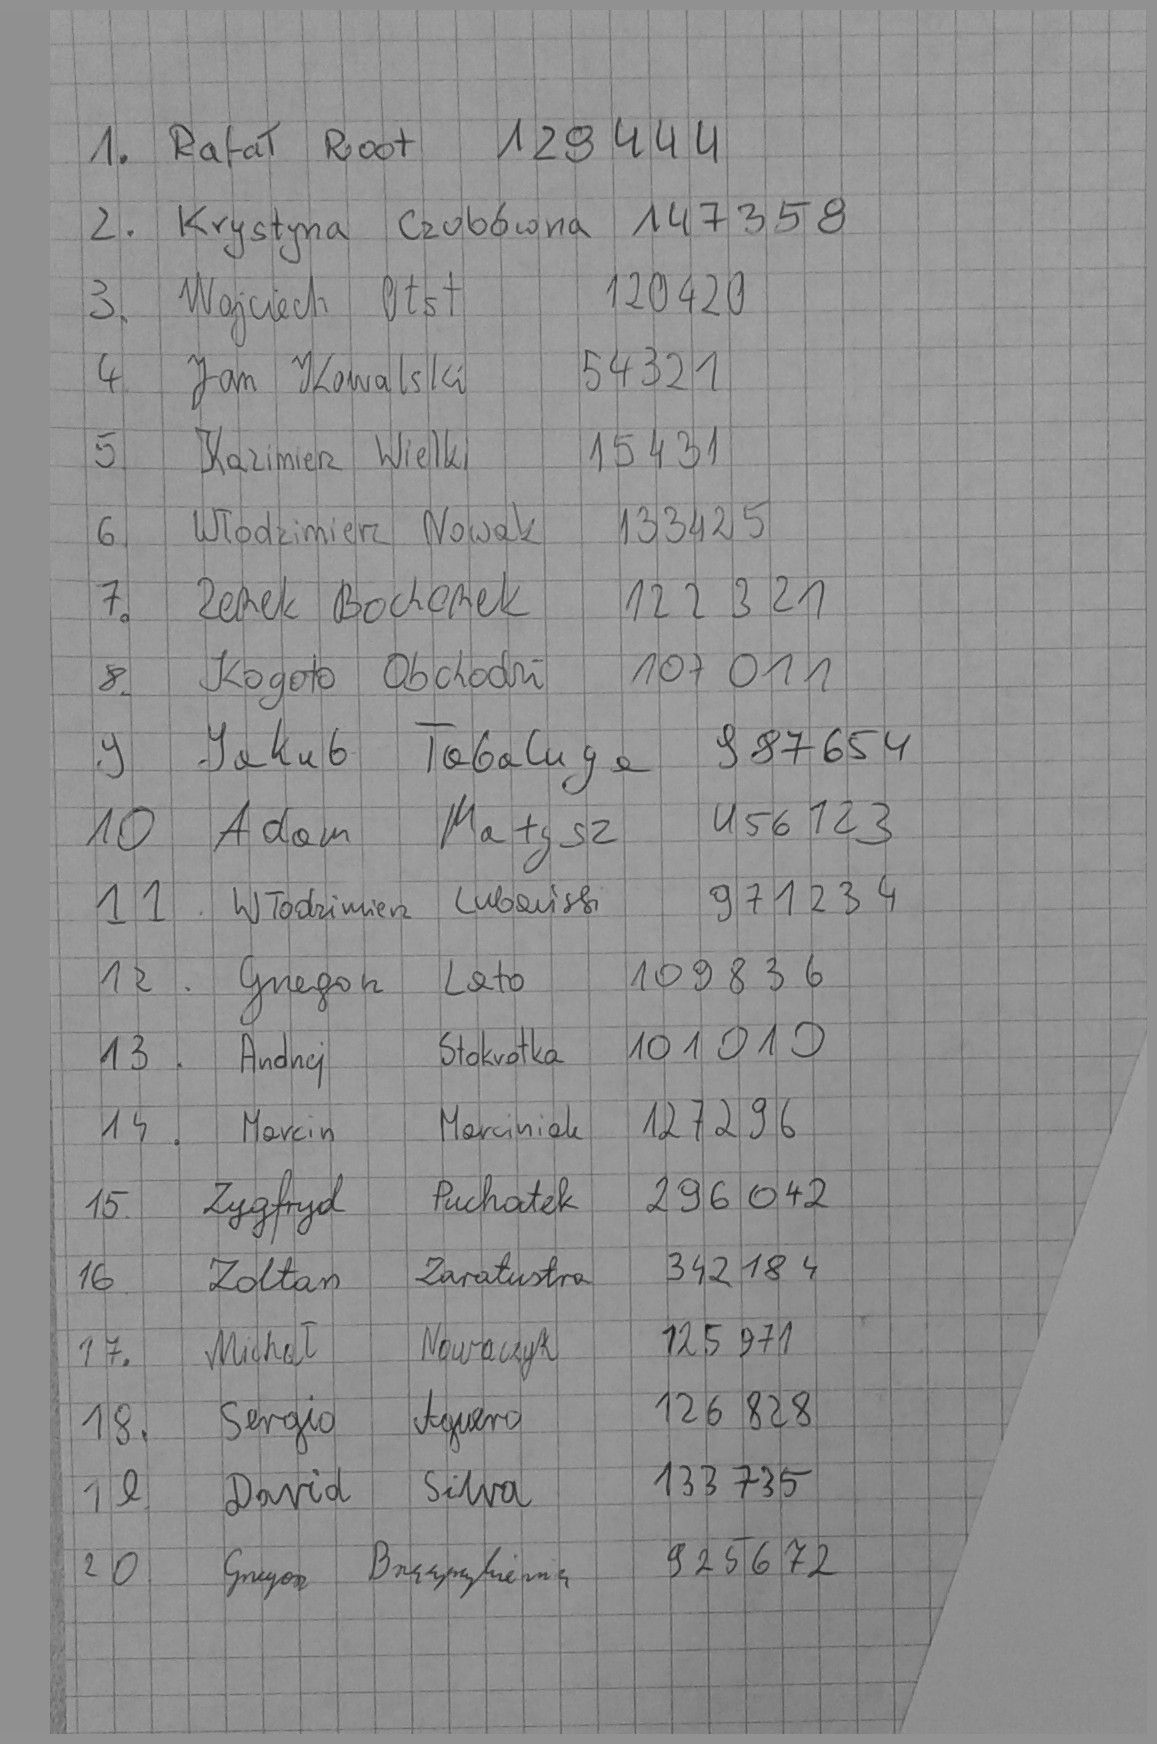 1. Rafał Root 129444
2. Krystyna Czubówna 147358
3. Wojciech 120420
4 Jan Kowalski 54321
5 Kazimierz Wielki 15431
6 Włodzimierz Nowak 133425
7. Zenek Bochenek 122321
8. Kogoto Obchodzi 107011
9 Jakub Tabaluga 987654
10 Adam Małysz 456123
11. Włodzimierz 971234
12. Grzegorz Lato 109836
13. Andrzej Stokrotka 101010
14. Marcin Marciniak 127296
15. Zygfryd Puchatek 296042
16 Zoltan Zaratustra 342184
17. Michał Nowaczyk 125971
18. Sergio Aguero 126828
19 David Silva 133735
20 Grzegorz 925672